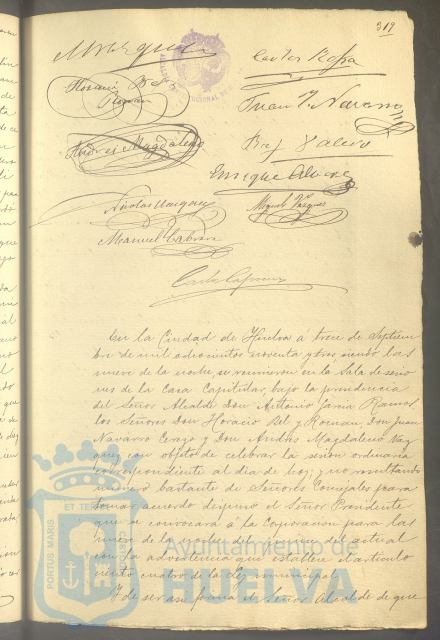 319
Marquez
Carlos Rofa
Horacio Bel
Roman
Juan N Navarro
Andrés Magdaleno
Enrique
Nicolas Vazquez
Miguel Vazquez
Manuel Cabrera
Carlos
En la Ciudad de Huelva á trece de Septiem
bre de mil ochocientos noventa y tres siendo las
nueve de la noche se reunieron en la Sala de sesio
nes de la Casa Capitular, bajo la presidencia
del Señor Alcalde Don Antonio García Ramos,
los Señores Don Horacio Bel y Roman, Don Juan
Navarro Cerezo y Don Andrés Magdaleno Vaz
quez, con objeto de celebrar la sesion ordinaria
correspondiente al dia de hoy; y no resultando
número bastante de Señores Concejales para
tomar acuerdo dispuso el Señor Presidente
que se convocará á la Corporacion para las
nueve de la noche del quince del actual
con la advertencia que establece el articulo
ciento cuatro de la Ley municipal.
Y de ser así firma el Señor Alcalde de que
PORTUS MARIS
ET TERRAE
CUSTODIA
Ayuntamiento de
HUELVA